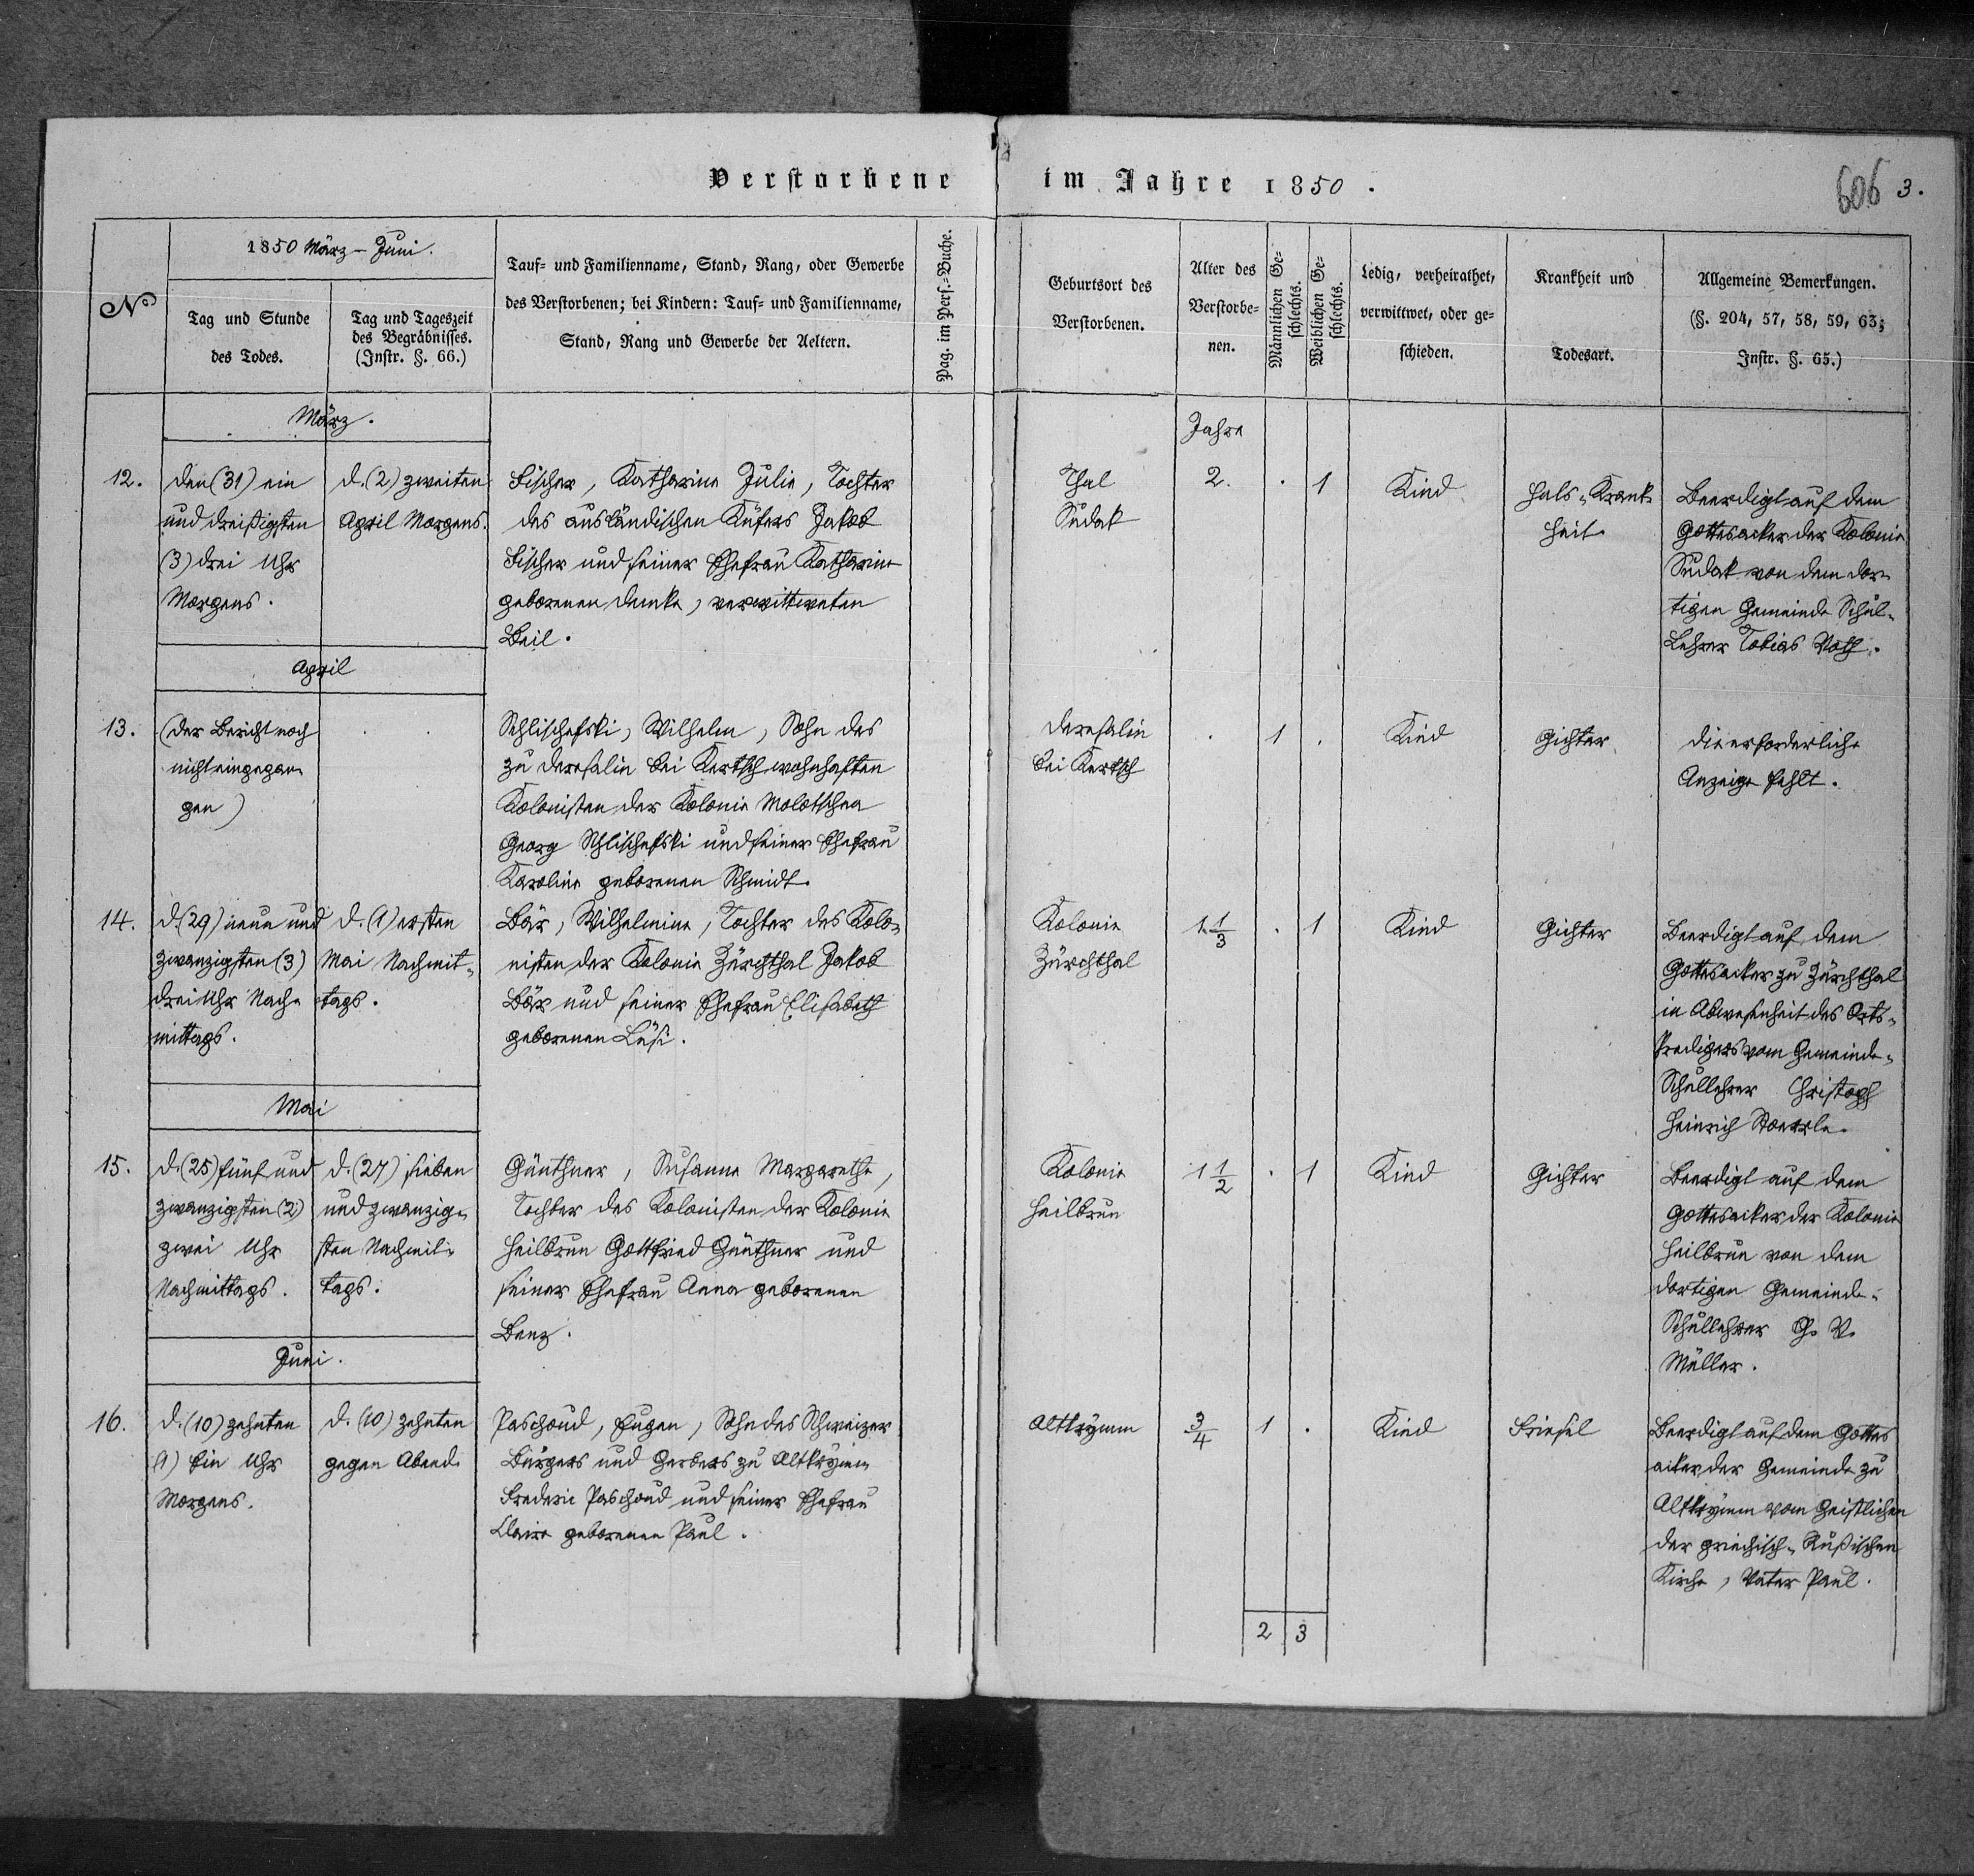 Verstorbene im Jahre 1850.
606 3.
№
1850 März – Juni.
Tag und Stunde
des Todes.
Tag und Tageszeit
des Begräbnisses.
(Instr. §. 66.)
Tauf- und Familienname, Stand, Rang, oder Gewerbe
des Verstorbenen; bei Kindern: Tauf- und Familienname,
Stand, Rang und Gewerbe der Aeltern.
Pag. im Pers.-Buche.
Geburtsort des
Verstorbenen.
Alter des
Verstorbe-
nen.
Männlichen Ge-
schlechts.
Weiblichen Ge-
schlechts.
Ledig, verheirathet,
verwittwet, oder ge-
schieden.
Krankheit und
Todesart.
Allgemeine Bemerkungen.
(§. 204, 57, 58, 59, 63;
Instr. §. 65.)
März.
Jahre
12.
den (31) ein
und dreißigsten
(3) drei Uhr
Morgens.
d. (2) zweiten
April Morgens.
Fischer, Katharina Julie, Tochter
des ausländischen Küfers Jakob
Fischer und seiner Ehefrau Katharina
geborenen Demke, verwittweten
Beil.
Thal
Sudak
2.
.
1
Kind
Hals-Krank-
heit
Beerdigt auf dem
Gottesacker der Kolonie
Sudak von dem dor-
tigen Gemeinde Schul-
Lehrer Tobias Voth.
April
13.
(der Bericht noch
nicht eingegan-
gen)
Schlischefski, Wilhelm, Sohn des
zu Deresalin bei Kertsch wohnhaften
Kolonisten der Kolonie Molotschna
Georg Schlischefski und seiner Ehefrau
Karoline geborenen Schmidt.
Deresalin
bei Kertsch
.
1
.
Kind
Gichter
Die erforderliche
Anzeige fehlt.
14.
d. (29) neun und
zwanzigsten (3)
drei Uhr Nach-
mittags.
d. (1) ersten
Mai Nachmit-
tags.
Bär, Wilhelmine, Tochter des Kolo-
nisten der Kolonie Zürchthal Jakob
Bär und seiner Ehefrau Elisabeth
geborenen Lüsi.
Kolonie
Zürchthal
1 1/3
.
1
Kind
Gichter
Beerdigt auf dem
Gottesacker zu Zürchthal
in Abwesenheit des Orts-
Predigers vom Gemeinde-
Schullehrer Christoph
Heinrich
Mai
15.
d. (25) fünf und
zwanzigsten (2)
zwei Uhr
Nachmittags.
d. (27) sieben
und zwanzig-
sten Nachmit-
tags.
Günthner, Susanna Margaretha,
Tochter des Kolonisten der Kolonie
Heilbrun Gottfried Günthner und
seiner Ehefrau Anna geborenen
Benz.
Kolonie
Heilbrun
1 1/2
.
1
Kind
Gichter
Beerdigt auf dem
Gottesacker der Kolonie
Heilbrun von dem
dortigen Gemeinde-
Schullehrer G. V.
Müller.
Juni.
16.
d. (10) zehnten
(1) Ein Uhr
Morgens.
d. (10) zehnten
gegen Abend.
Paschoud, Eugen, Sohn des Schweizer
Bürgers und Gerbers zu Altkrymm
Frederic Paschoud und seiner Ehefrau
Claire geborenen Paul.
Altkrymm
3/4
1
.
Kind
Friesel
Beerdigt auf dem Gottes
acker der Gemeinde zu
Altkrymm vom Geistlichen
der griechisch-Rußischen
Kirche, Vater Paul.
2 3